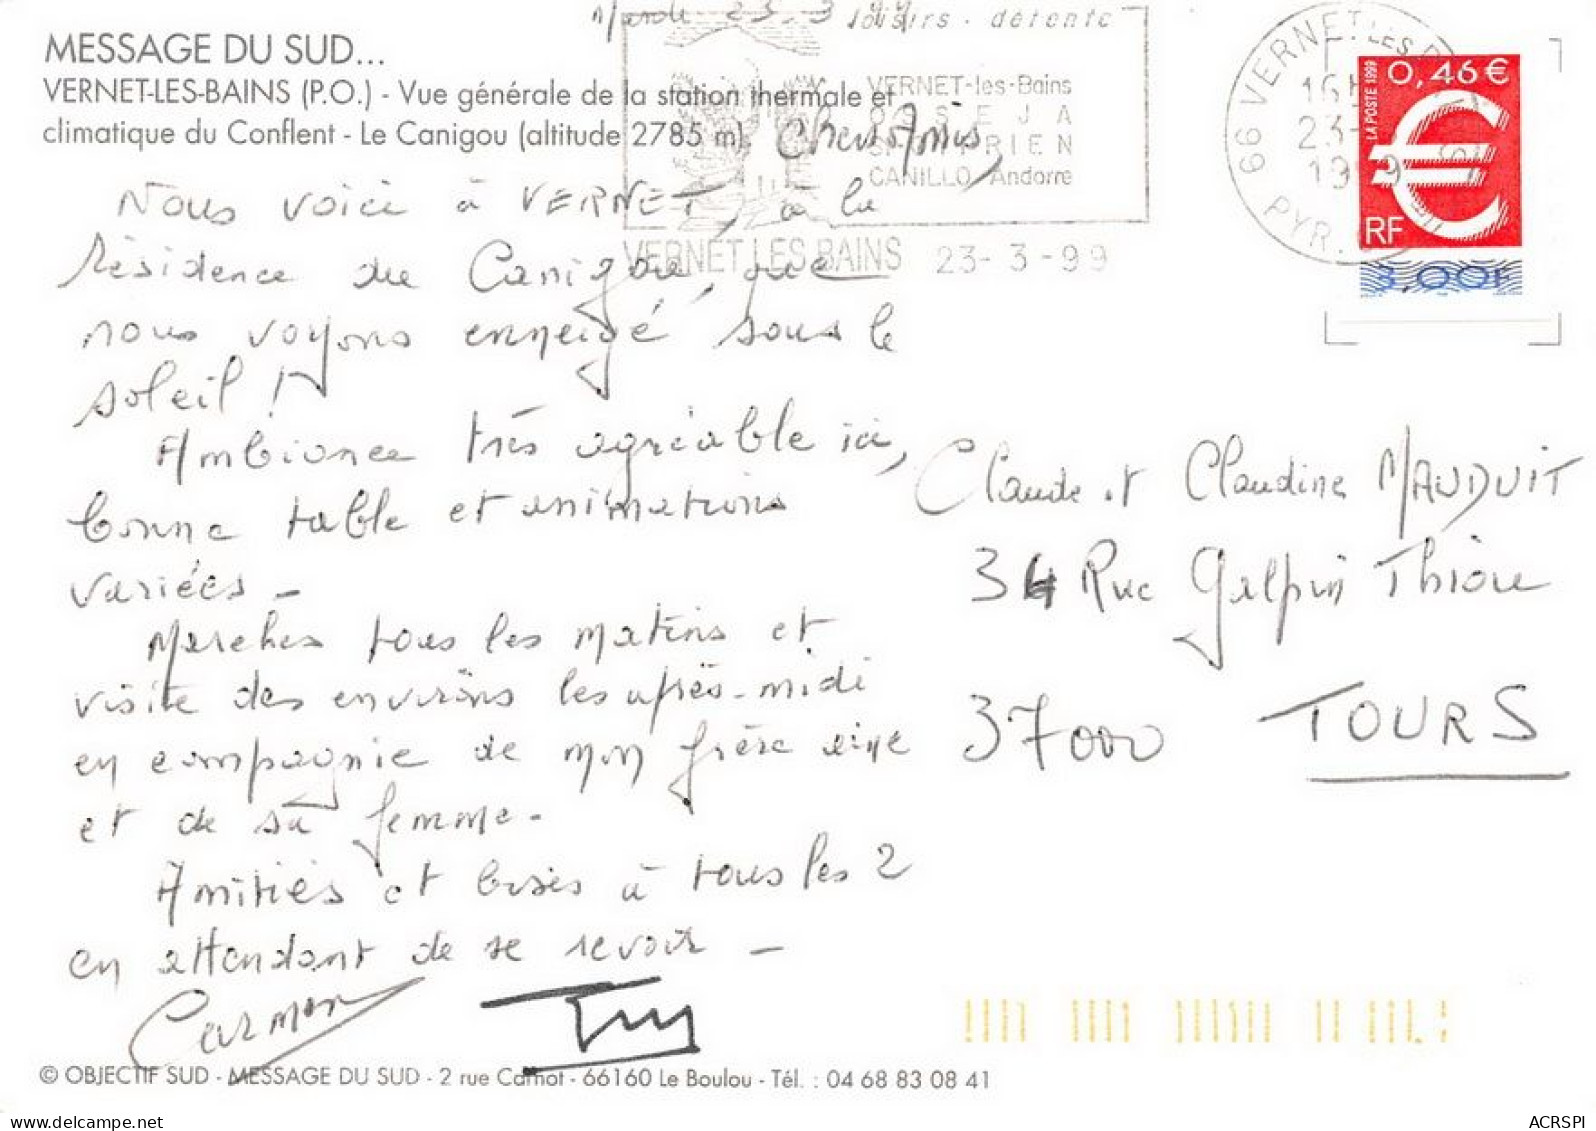 Mardi 23.3.99
loisirs - détente
MESSAGE DU SUD...
VERNET-LES-BAINS (P.O.) - Vue générale de la station thermale et
climatique du Conflent - Le Canigou (altitude 2785 m).
VERNET-les-Bains
OSSEJA
CANILLO Andorre
VERNET LES BAINS 23-3-99
66 VERNET LES B
16H
23-
1999
PYR.
0,46 €
LA POSTE 1999
RF
3,00F
Chers Amis,
Nous voici à VERNET, à la
résidence du Canigou, que
nous voyons enneigé sous le
soleil !
Ambiance très agréable ici,
bonne table et animations
variées -
Marches tous les matins et
visite des environs les après-midi
en compagnie de mon frère ainé
et de sa femme.
Amitiés et bises à tous les 2
en attendant de se revoir -
Carmen
Claude et Claudine MAUDUIT
34 Rue Galpin Thiou
37000 TOURS
© OBJECTIF SUD - MESSAGE DU SUD - 2 rue Carnot - 66160 Le Boulou - Tél. : 04 68 83 08 41
www.delcampe.net
ACRSPI